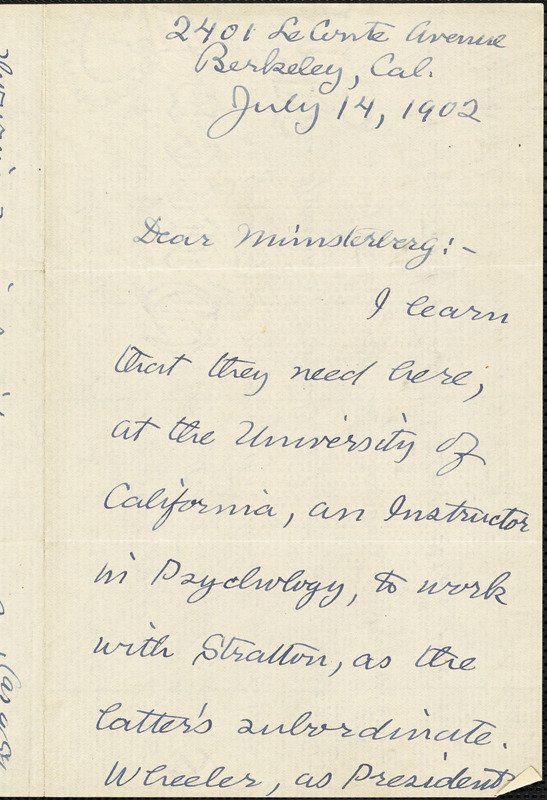 2401 LeConte Avenue
Berkeley, Cal.
July 14, 1902
Dear Münsterberg:-
I learn
that they need here,
at the University of
California, an Instructor
in Psychology, to work
with Stratton, as the
latter's subordinate.
Wheeler, as President